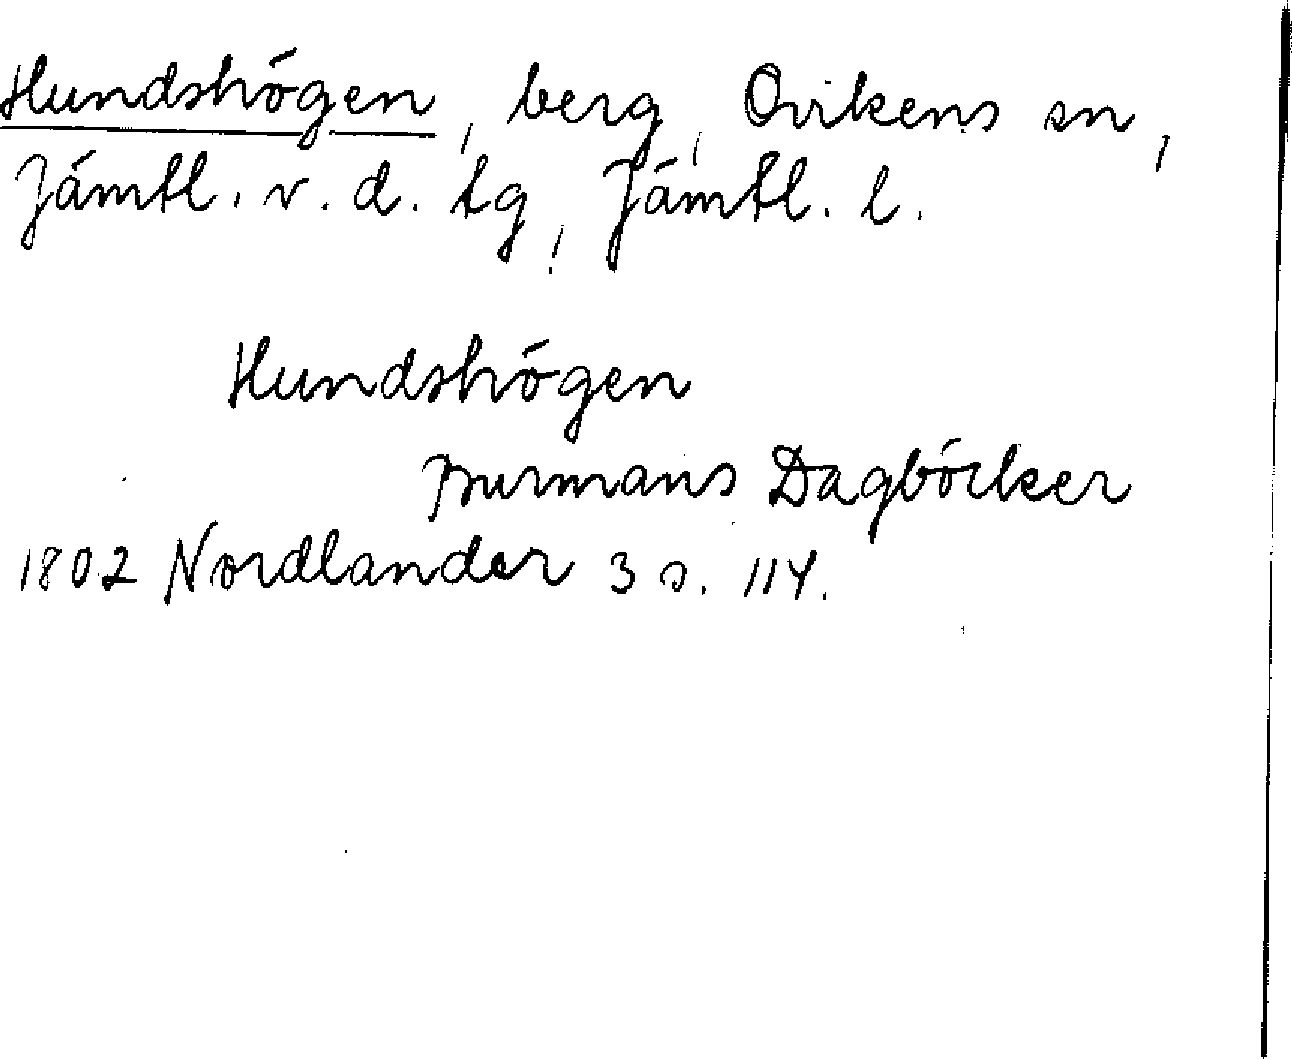 Hundshögen, berg, Ovikens sn,
Jämtl. v. d. tg, Jämtl. l.
Hundshögen
Burmans Dagböcker
1802 Nordlander 3 s. 114.